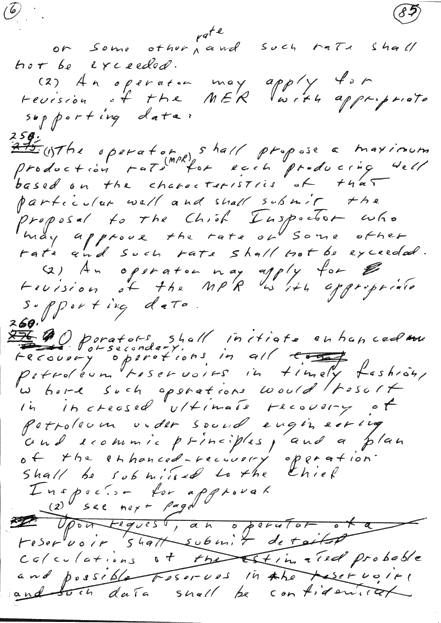 6 85
or some other rate and such rate shall
not be exceeded.
(2) An operator may apply for
revision of the MER with appropriate
supporting data.
259.
275 (1) The operator shall propose a maximum
production rate (MPR) for each producing well
based on the characteristics of that
particular well and shall submit the
proposal to the Chief Inspector who
may approve the rate or some other
rate and such rate shall not be exceeded.
(2) An operator may apply for
revision of the MPR with appropriate
supporting data.
260.
Operators shall initiate enhanced
or secondary
recovery operations in all
petroleum reservoirs in timely fashion,
where such operations would result
in increased ultimate recovery of
petroleum under sound engineering
and economic principles, and a plan
of the enhanced-recovery operation
shall be submitted to the Chief
Inspector for approval
(2) see next page
Upon request, an operator of a
reservoir shall submit details
calculations of the estimated probable
and possible reserves in the reservoirs
and such data shall be confidential